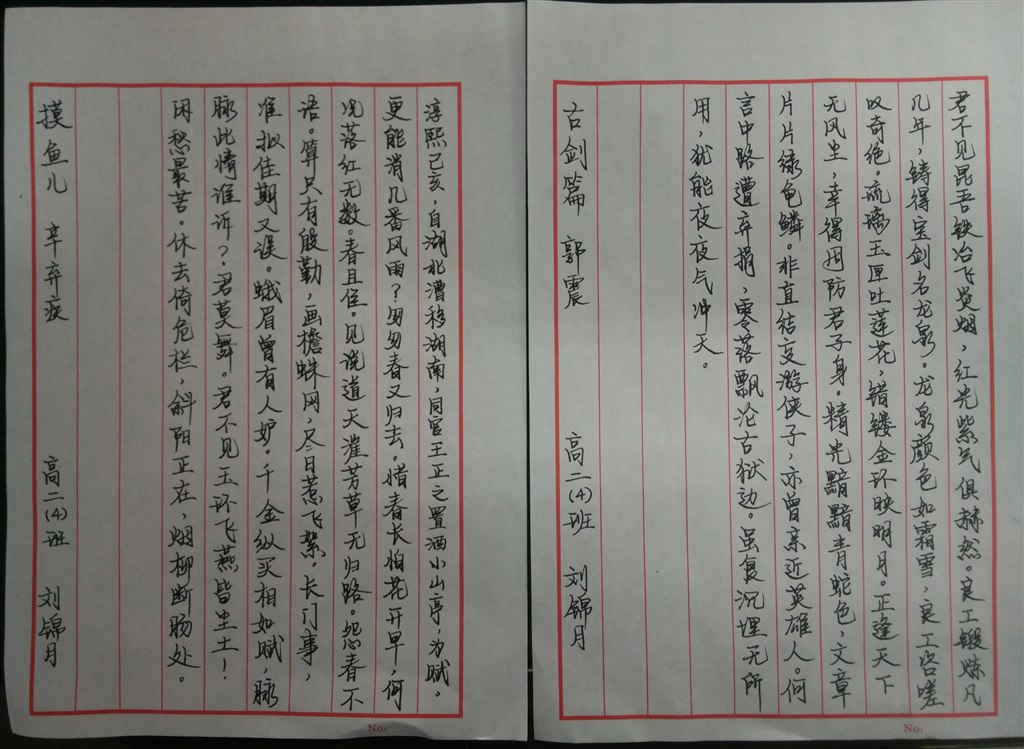 君不见昆吾铁冶飞炎烟，红光紫气俱赫然。良工锻炼凡
几年，铸得宝剑名龙泉。龙泉颜色如霜雪，良工咨嗟
叹奇绝。琉璃玉匣吐莲花，错镂金环映明月。正逢天下
无风尘，幸得用防君子身。精光黯黯青蛇色，文章
片片绿龟鳞。非直结交游侠子，亦曾亲近英雄人。何
言中路遭弃捐，零落飘沦古狱边。虽复沉埋无所
用，犹能夜夜气冲天。
古剑篇 郭震 高二(4)班 刘锦月
No:
淳熙己亥，自湖北漕移湖南，同官王正之置酒小山亭，为赋。
更能消几番风雨？匆匆春又归去。惜春长怕花开早，何
况落红无数。春且住。见说道天涯芳草无归路。怨春不
语。算只有殷勤，画檐蛛网，尽日惹飞絮。长门事，
准拟佳期又误。蛾眉曾有人妒。千金纵买相如赋，脉
脉此情谁诉？君莫舞。君不见玉环飞燕皆尘土！
闲愁最苦。休去倚危栏，斜阳正在，烟柳断肠处。
摸鱼儿 辛弃疾 高二(4)班 刘锦月
No: